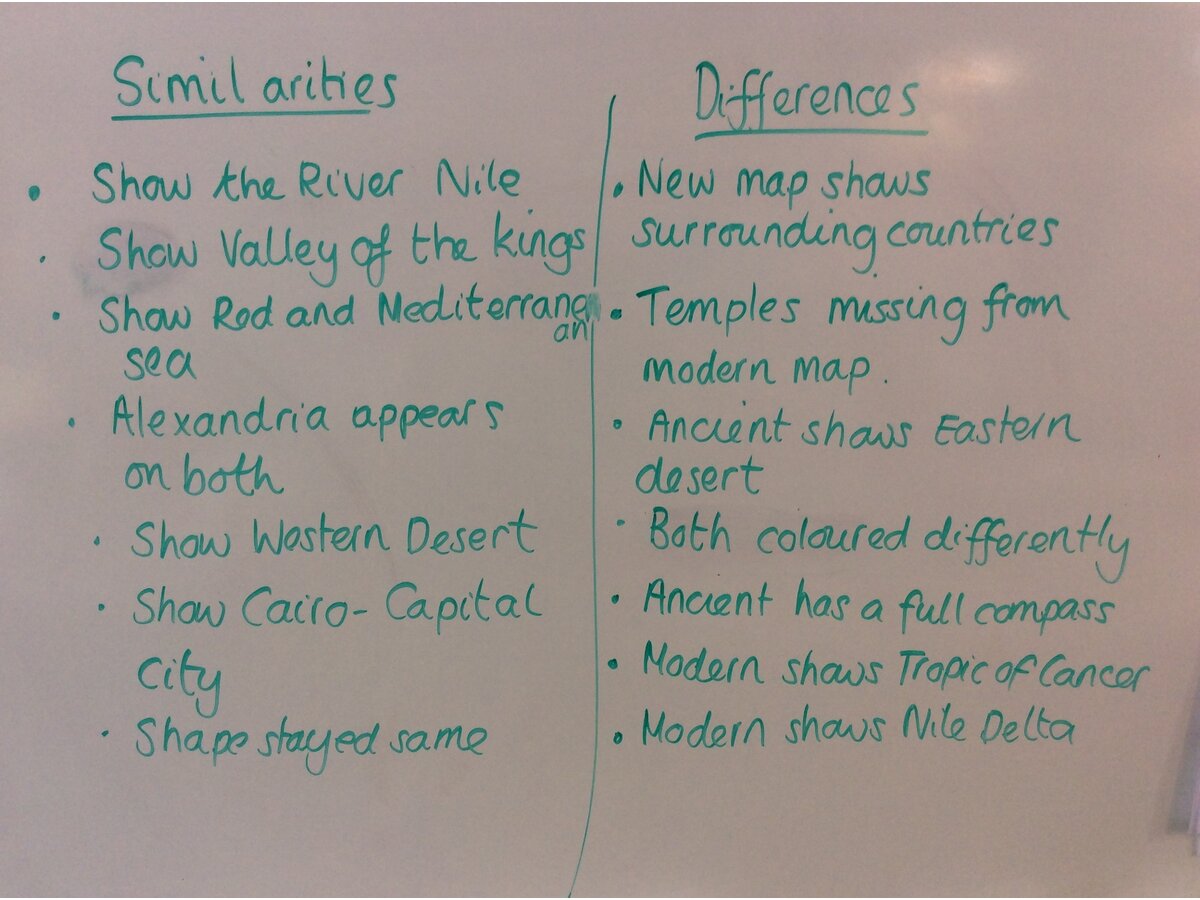 Similarities
• Show the River Nile
• Show Valley of the kings
• Show Red and Mediterranean
sea
• Alexandria appears
on both
• Show Western Desert
• Show Cairo - Capital
city
• Shape stayed same
Differences
• New map shows
surrounding countries
• Temples missing from
modern map.
• Ancient shows Eastern
desert
• Both coloured differently
• Ancient has a full compass
• Modern shows Tropic of Cancer
• Modern shows Nile Delta